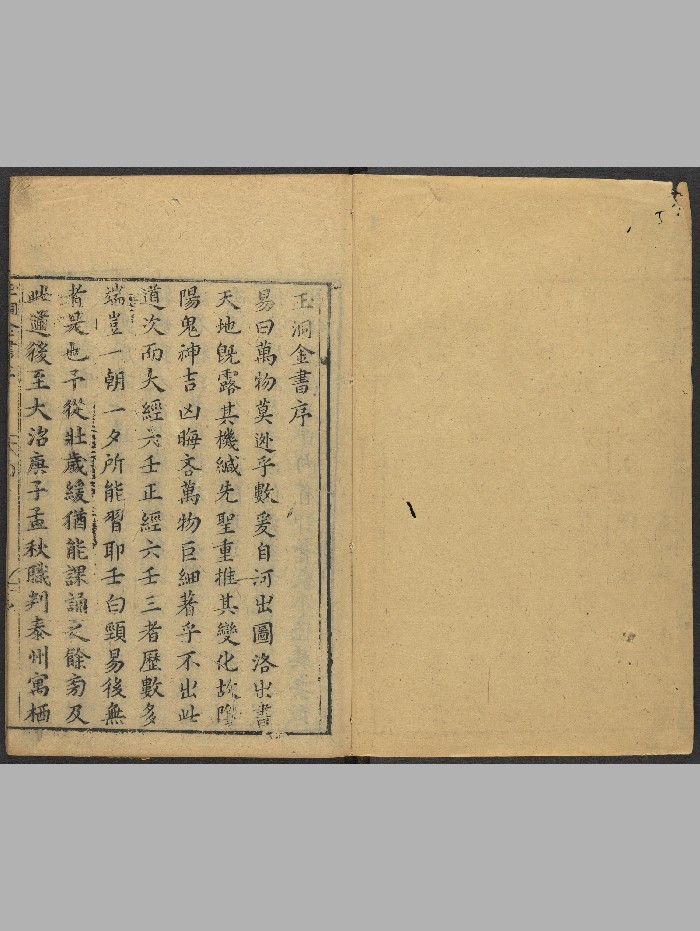 玉洞金書序
易曰萬物莫逃乎數爰自河出圖洛出書
天地旣露其機緘先聖重推其變化故陰
陽鬼神吉凶晦吝萬物巨細著乎不出此
道次而大經六壬正經六壬三者歷數多
端豈一朝一夕所能習耶壬白頸易後無
者是也予從壯歲緩猶能課誦之餘旁及
此道後至大沼庚子孟秋職判泰州寓栖
洞金書